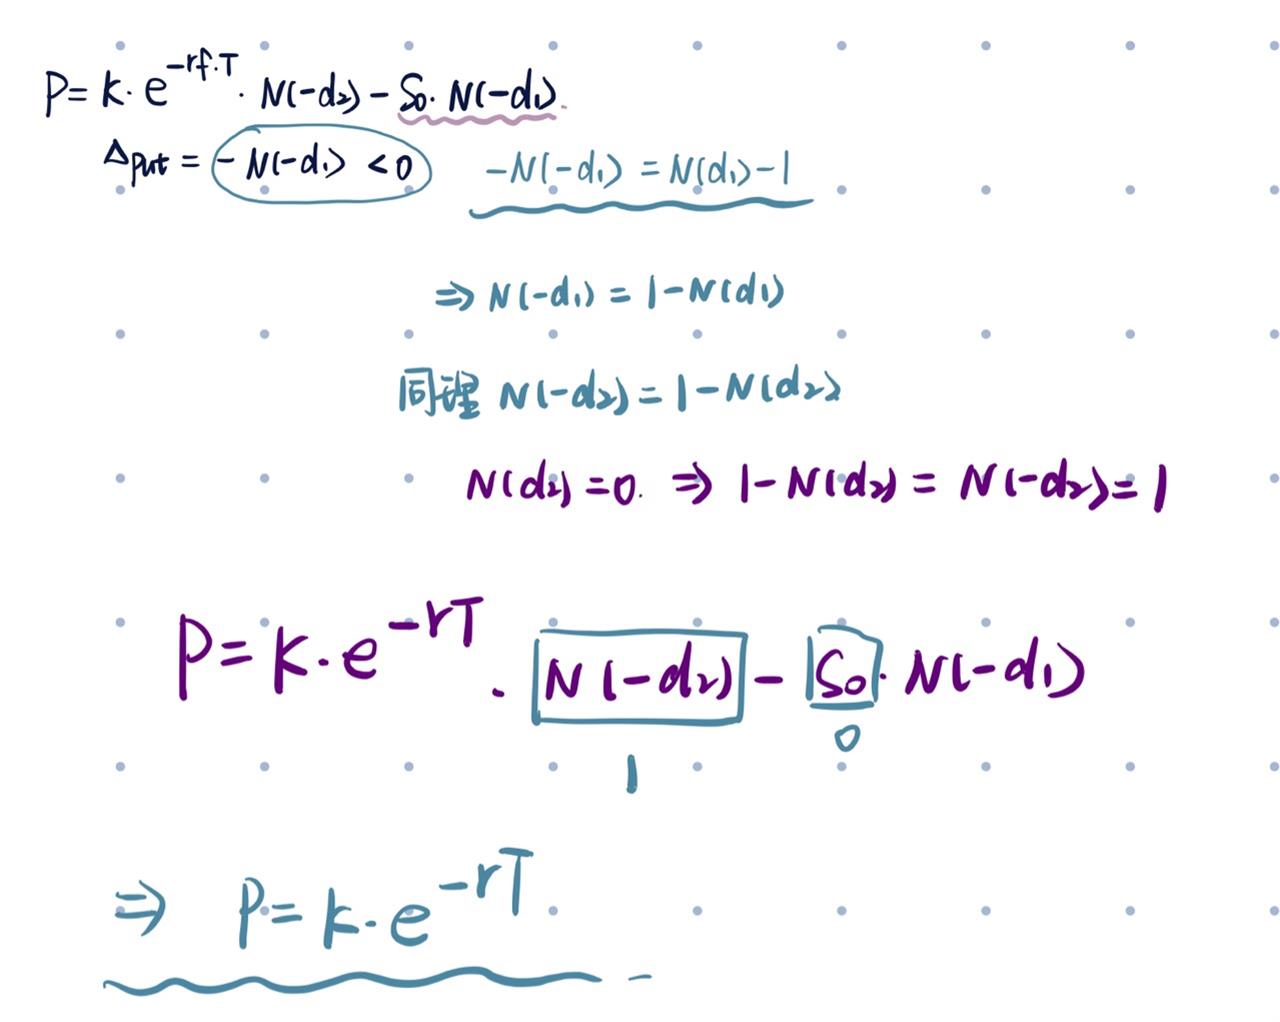 P= k· e^-rf·T · N(-d₂) - S₀· N(-d₁).
Δput = - N(-d₁) <0 -N(-d₁) = N(d₁)-1
⇒ N(-d₁) = 1-N(d₁)
同理 N(-d₂) = 1-N(d₂)
N(d₂) =0. ⇒ 1-N(d₂) = N(-d₂)=1
P= k·e^-rT · N(-d₂) - S₀· N(-d₁)
1 0
⇒ P= k·e^-rT